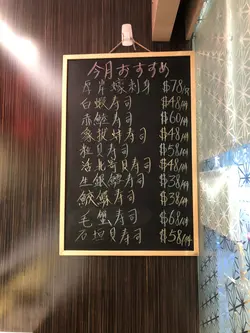 今月おすすめ
厚岸蠔刺身 $78/只
白蝦寿司 $48/件
赤鯥寿司 $60/件
象拔蚌寿司 $48/件
粒貝寿司 $58/件
活北寄貝寿司 $48/件
生銀鱈寿司 $38/件
寿司 $38/件
毛蟹寿司 $68/件
石垣貝寿司 $58/件